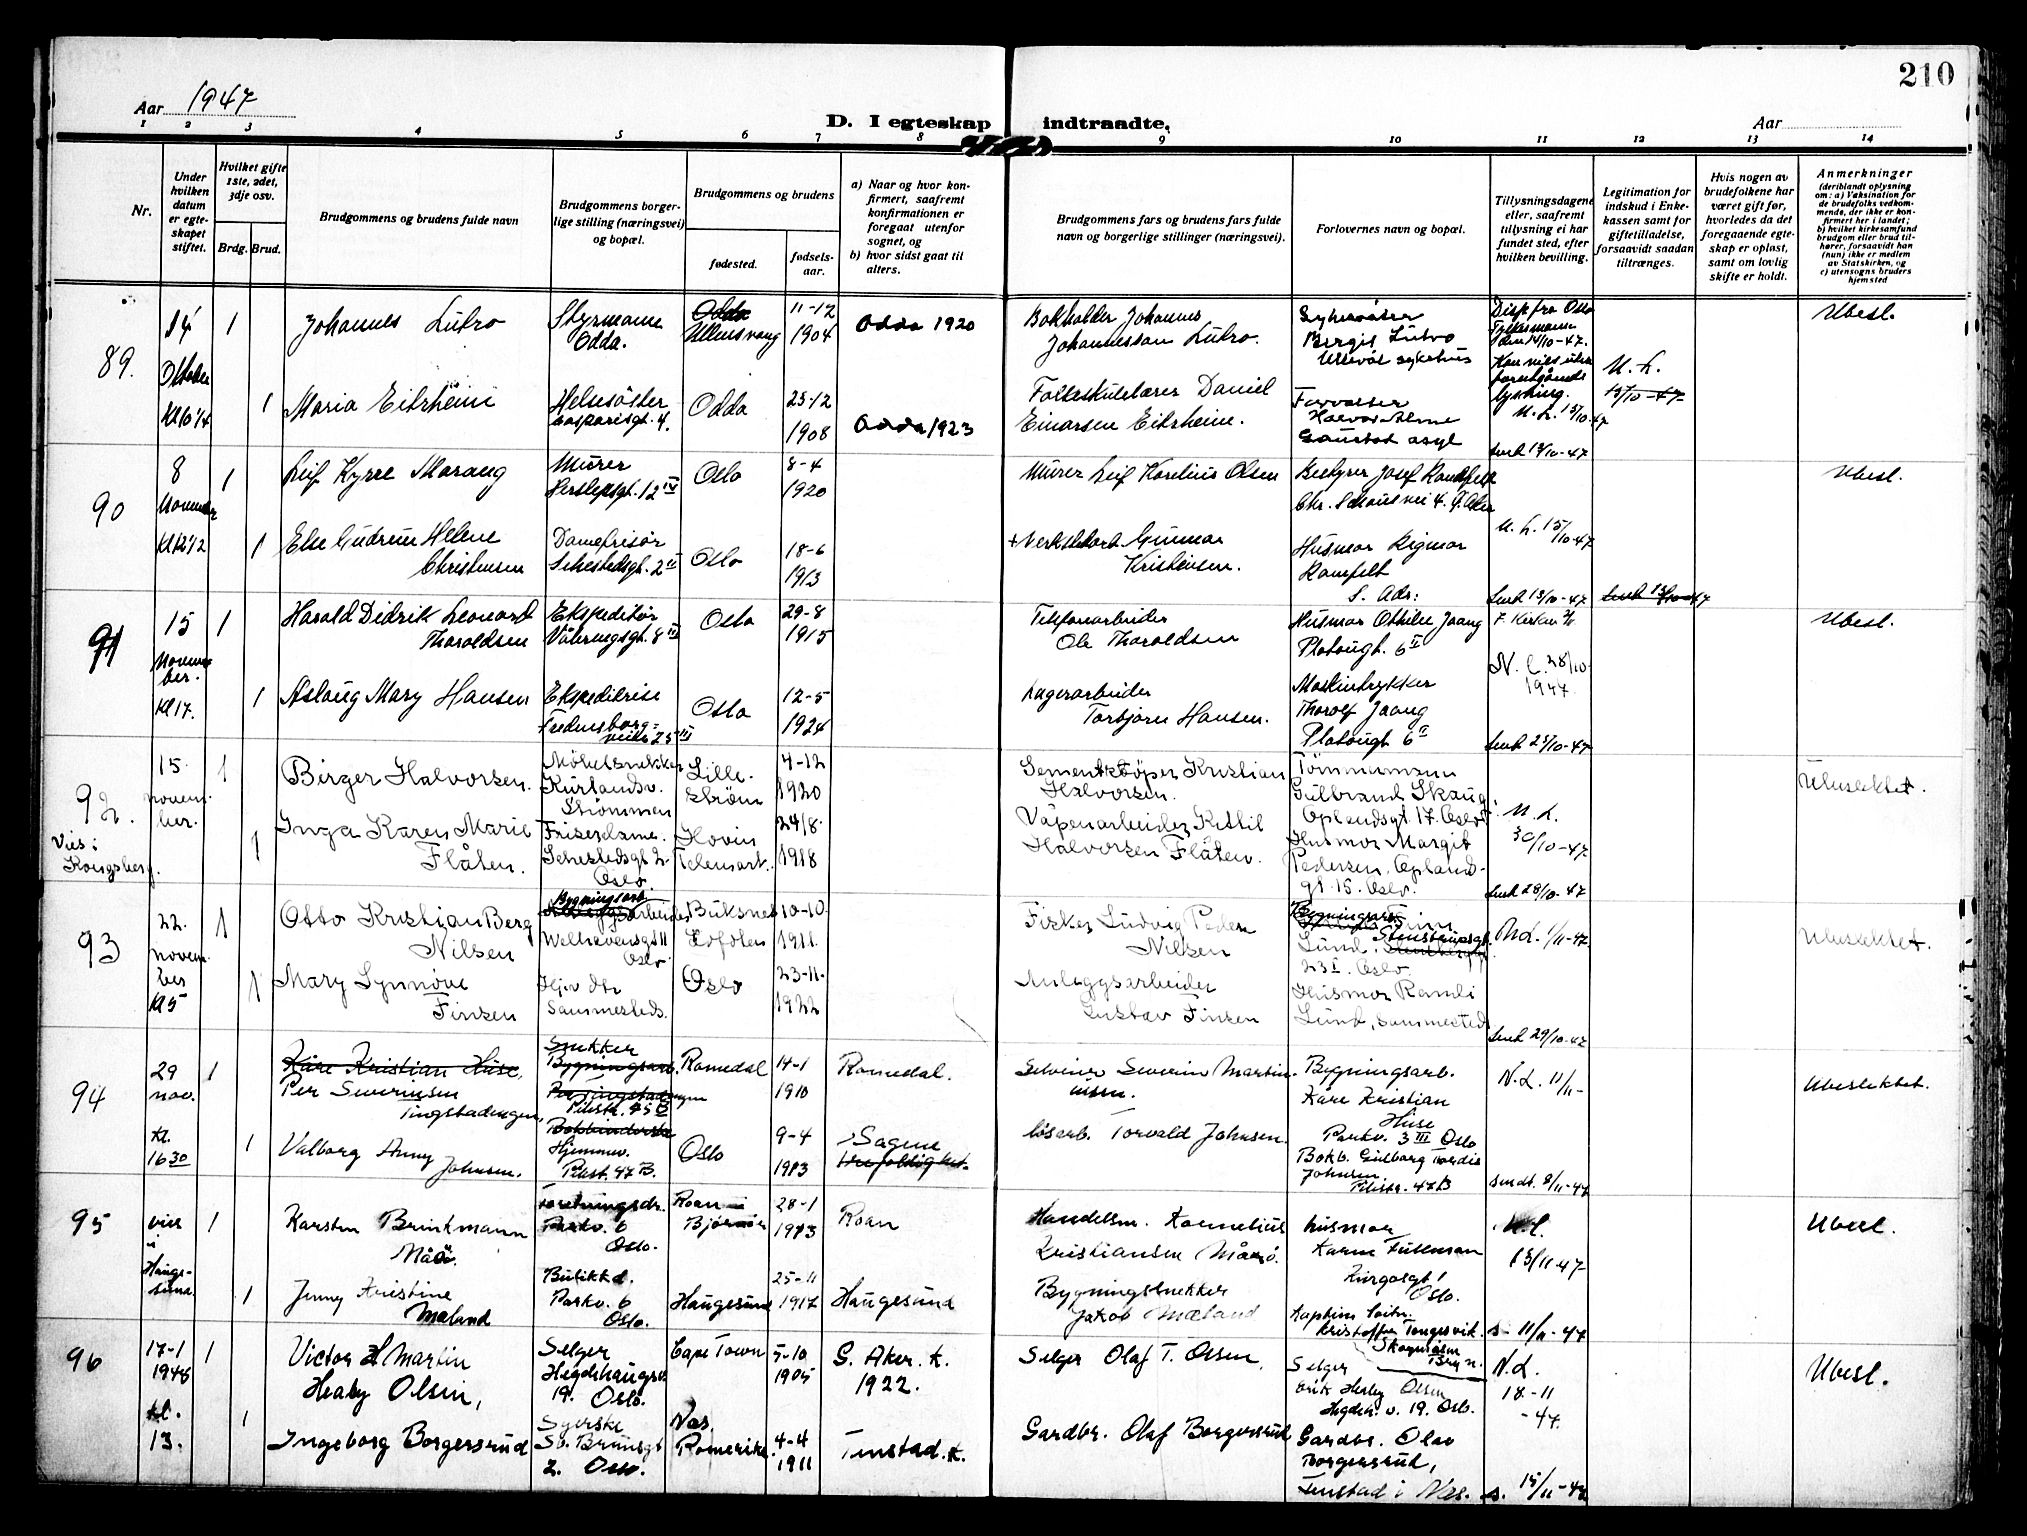 210
Aar 1947
D. I egteskap indtraadte.
Aar
1 2 3 4 5 6 7 8 9 10 11 12 13 14
Nr.
Under hvilken datum er egteskapet stiftet.
Hvilket gifte 1ste, 2det, 3dje osv.
Brdg. Brud.
Brudgommens og brudens fulde navn
Brudgommens borgerlige stilling (næringsvei) og bopæl.
Brudgommens og brudens
fødested.
fødselsaar.
a) Naar og hvor konfirmert, saafremt konfirmationen er foregaat utenfor sognet, og
b) hvor sidst gaat til alters.
Brudgommens fars og brudens fars fulde navn og borgerlige stillinger (næringsvei).
Forlovernes navn og bopæl.
Tillysningsdagene eller, saafremt tillysning ei har fundet sted, efter hvilken bevilling.
Legitimation for indskud i Enkekassen samt for giftetilladelse, forsaavidt saadan tiltrænges.
Hvis nogen av brudefolkene har været gift før, hvorledes da det foregaaende egteskap er opløst, samt om lovlig skifte er holdt.
Anmerkninger
(deriblandt oplysning om: a) Vaksination for de brudefolks vedkommende, der ikke er konfirmert her i landet; b) hvilket kirkesamfund brudgom eller brud tilhører, forsaavidt han (hun) ikke er medlem av Statskirken, og c) utensogns bruders hjemsted
89. 14 Oktober 1 Johannes Lutro Styrmann Odda. Odda Ullensvang 11-12 1904 Odda 1920
Bokholder Johannes Johannesson Lutro. Sykesøster Bergit Lutro Ullevål sykehus
Disp fra Oslo Fylkesmann den 14/10-47.
Ubesl.
1 Maria Eitrheim Helsesøster Casparisgt. 4. Odda 23-12 1908 Odda 1923
Folkeskulelærer Daniel Einarsen Eitrheim. Forvalter Halvor Alme Gaustad asyl
N. L. 15/10-47
N. L. 15/10-47
Sendt 13/10-47
90 8 November Kl 12 1/2 1 Leif Kyrre Marang Murer Herslepsgt. 12 IV Oslo 8-4 1920
Murer Leif Karelius Olsen Bestyrer Josef Ramfelt Chr. Schous vei 4. Ø. Aker
Ubesl.
1 Else Gudrun Helene Christensen Damefrisør Sehestedsgt. 2 II Oslo 18-6 1913
+ Verkstedarb Gunnar Kristensen. Husmor Rigmor Ramfelt S. Adr:
N. L. 15/10-47
Sendt 13/10-47
91 15 November Kl 17. 1 Harald Didrik Leonard Tharoldsen Ekspeditør Vålerengsgt. 8 III Oslo 29-8 1915
Telefonarbeider Ole Tharoldsen Husmor Othilie Jaang Platougt. 6 II
Ubesl.
1 Aslaug Mary Hansen Ekspeditrise Fredensborgveien 25 III Oslo 12-5 1924
Lagerarbeider Torbjørn Hansen. Maskintrykker Thorolf Jaang Platougt 6 II
N. L. 28/10-1947
Sendt 25/10-47
92. Vies i Kongsberg. 15. november. 1 Birger Halvorsen. Møbelsnekker Kurlandsv. Strømmen Lillestrøm 4-12 1920
Sementstøper Kristian Halvorsen. Tømmermann Gulbrand Skaug Oplandsgt 17. Oslo
Ubeslektet.
1 Inga Karen Marie Flåten. Friserdame. Sehestedsgt 2 Oslo. Hovin Telemark. 24/8- 1918
Våpenarbeider Kittil Halvorsen Flåten. Husmor Margit Pedersen, Oplandgt. 15. Oslo.
N. L. 30/10-47.
Sendt 28/10-47
93 22. november Kl 5 1 Otto Kristian Berg Nilsen Bygningsarb Welhavensgt 11 Oslo Buksnes Lofoten 10-10- 1911.
Fisker Ludvig Peder Nilsen Bygningsarb Finn Lund, Stenstrupsgt. 23 I. Oslo.
N.L. 1/11-47.
Ubeslektet.
1 Mary Synnøve Finsen Hjv dtr Sammesteds. Oslo 23-11- 1922
Anleggsarbeider Gustav Finsen Husmor Randi Lund, sammesteds
Sendt 29/10-47
94 29 nov. Kl. 16 30 1 Kåre Kristian Huse, Per Severinsen Tingstadengen, Snekker Bygningsarb. Pilestr. 75 B Romedal 14-1 1910 Romedal.
Gelviner Severin Martinussen. Bygningsarb. Kåre Kristian Huse Parkv. 3 III Oslo
N.L. 11/11-
Ubeslektet.
1 Valborg Anny Johnsen. Bokbinderske Hjemmev. Pilest. 47 B. Oslo 9-4 1913 Sagene Trefoldighet.
Løsarb. Torvald Johnsen. Bokb. Gulborg Tordis Johnsen Pilestr. 47 B
Sendt. 8/11-47
95 vies i Haugesund. 1 Karsten Brinkmann Måsø. Forretningsdr. Parkv. 6 Oslo. Roan Bjørnør 28-1 1913 Roan
Handelsm. Kornelius Kristiansen Måsø. husmor Karen Fuhrman Oslo.
N.L. 13/11-47
Ubesl.
1 Jenny Kristine Mæland Butikkd. Parkv. 6 Oslo. Haugesund 25-11 1917 Haugesund
Bygningssnekker Jakob Mæland Kristoffer Tengesvik. Skøyenåsen Bryn.
s- 11/11-47
96 17-1 1948 kl. 13. 1 Victor H Martin Healy Olsen, Selger Hegdehaugsv. 19. Oslo. Cape Town 5-10 1905 G. Aker. k. 1922.
Selger Olaf T. Olsen, Selger Erik Healy Olsen Hegdeh. v. 19. Oslo.
N.L. 18-11-47.
Ubesl.
1 Ingeborg Borgersrud Syerske Sv. Bruunsgt 2. Oslo. Nes Romerike. 4-4 1911 Fenstad. k.
Gardbr. Olaf Borgersrud Gardbr. Olav Borgersrud, Fenstad i Nes.
s. 15/11-47